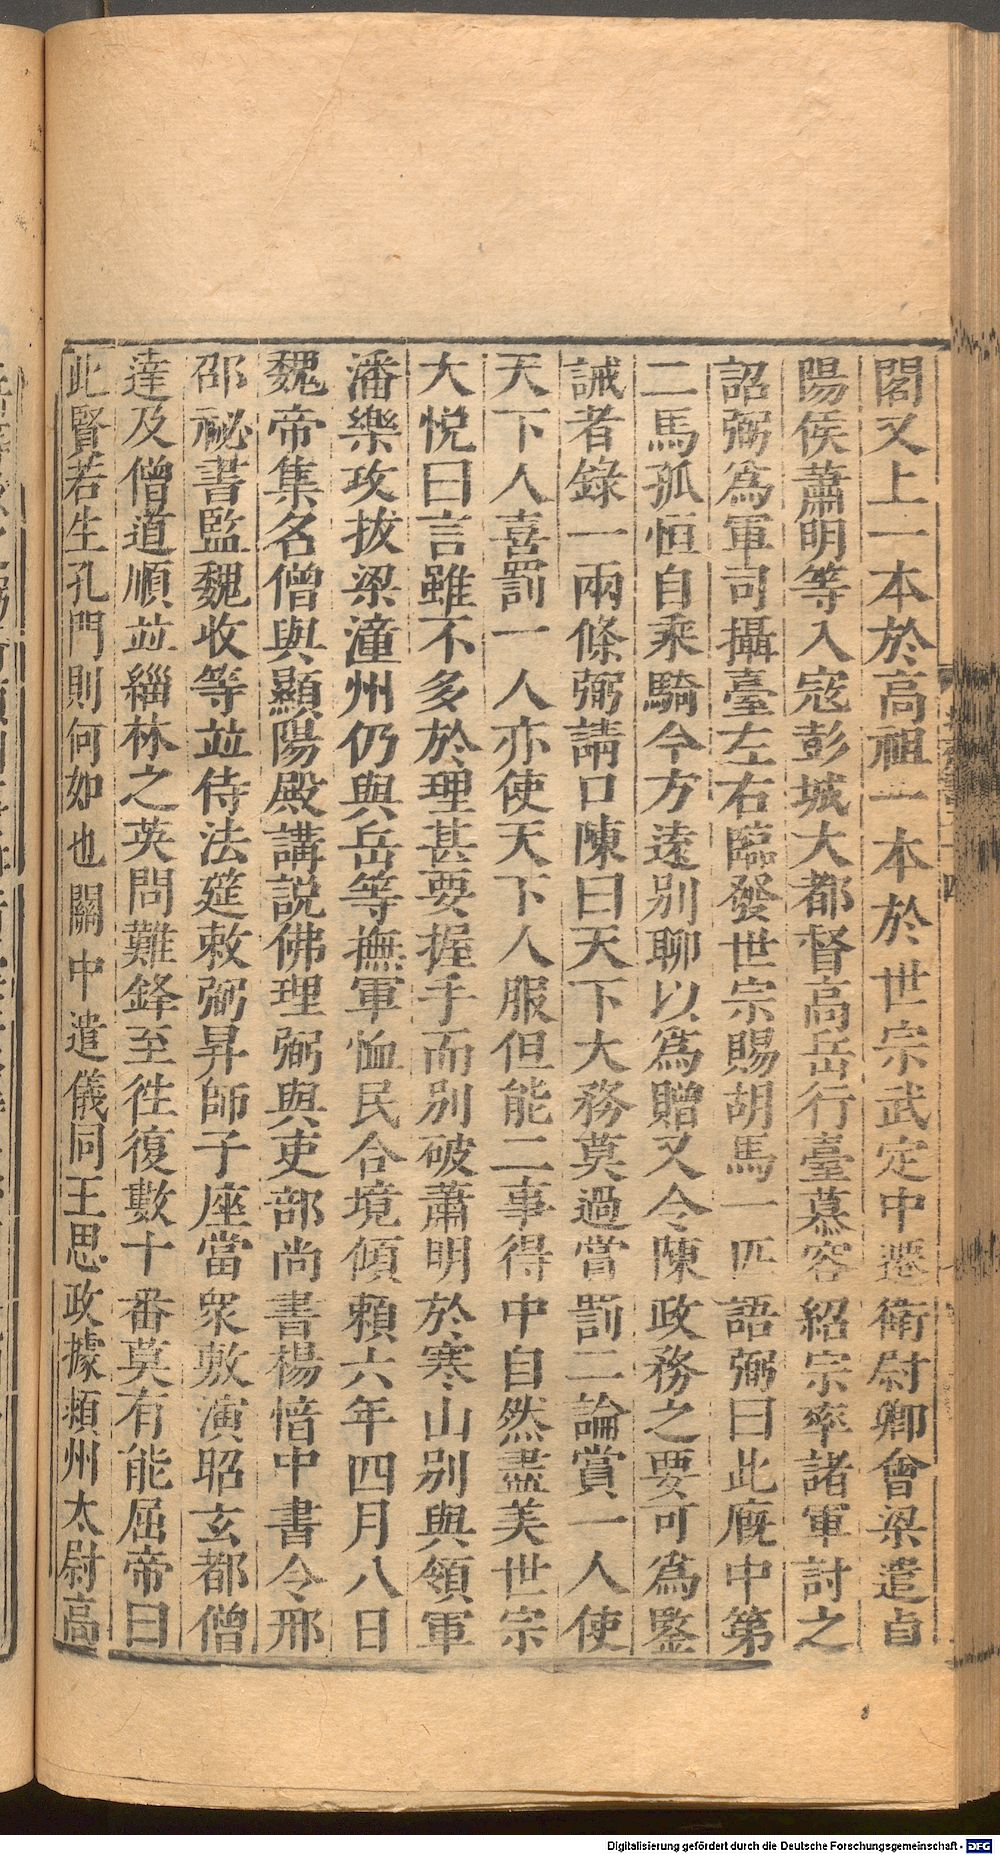 閣又上一本於高祖一本於世宗武定中遷衛尉卿會梁遣貞
陽侯蕭明等入寇彭城大都督高岳行臺慕容紹宗率諸軍討之
詔弼為軍司攝臺左右臨發世宗賜胡馬一匹語弼曰此廐中第
二馬孤恒自乘騎今方遠別聊以為贈又令陳政務之要可為鑒
誡者錄一兩條弼請口陳曰天下大務莫過當罰二論賞一人使
天下人喜罰一人亦使天下人服但能二事得中自然盡美世宗
大悅曰言雖不多於理甚要握手而別破蕭明於寒山別與領軍
潘樂攻拔梁潼州仍與岳等撫軍恤民合境傾賴六年四月八日
魏帝集名僧與顯陽殿講說佛理弼與吏部尚書楊愔中書令邢
邵祕書監魏收等並侍法筵敕弼昇師子座當衆敷演昭玄都僧
達及僧道順並緇林之英問難鋒至徃復數十番莫有能屈帝曰
此賢若生孔門則何如也關中遣儀同王思政據潁州太尉高
Digitalisierung gefördert durch die Deutsche Forschungsgemeinschaft - DFG